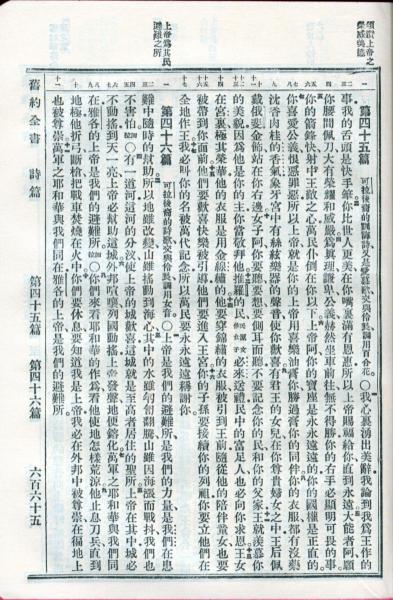 頌讚上帝之
榮威美德
上帝為其民
避難之所
第四十五篇 可拉後裔的訓誨詩又是愛慕歌交與伶長調用百合花。○我心裏湧出美辭我論到我為王作的
事我的舌頭是快手筆你比世人更美在你嘴裏滿有恩惠所以上帝賜福給你直到永遠大能者阿願
你腰間佩刀大有榮耀和威嚴為真理謙卑公義赫然坐車前往無不得勝你的右手必顯明可畏的事
你的箭鋒快射中王敵之心萬民仆倒在你以下上帝阿你的寶座是永永遠遠的你的國權是正直的
你喜愛公義恨惡罪惡所以上帝就是你的上帝用喜樂油膏你勝過膏你的同伴你的衣服都有沒藥
沈香肉桂的香氣象牙宮中有絲絃樂器的聲音使你歡喜有君王的女兒在你尊貴婦女之中王后佩
戴俄斐金飾站在你右邊女子阿你要聽要想要側耳而聽不要記念你的民和你的父家王就羨慕你
的美貌因為他是你的主你當敬拜他推羅的民民原文作女子必來送禮民中的富足人也必向你求恩王女
在宮裏極其榮華他的衣服是用金線繡的他要穿錦繡的衣服被引到王前隨從他的陪伴童女也要
被帶到你面前他們要歡喜快樂被引導他們要進入王宮你的子孫要接續你的列祖你要立他們在
全地作王我必叫你的名被萬代記念所以萬民要永永遠遠稱謝你
第四十六篇 可拉後裔的詩歌交與伶長調用女音。○上帝是我們的避難所是我們的力量是我們在患
難中隨時的幫助所以地雖改變山雖搖動到海心其中的水雖匉訇翻騰山雖因海漲而戰抖我們也
不害怕細拉○有一道河這河的分汊使上帝的城歡喜這城就是至高者居住的聖所上帝在其中城必
不動搖到天一亮上帝必幫助這城外邦喧嚷列國動搖上帝發聲地便鎔化萬軍之耶和華與我們同
在雅各的上帝是我們的避難所細拉○你們來看耶和華的作為看他使地怎樣荒涼他止息刀兵直到
地極他折弓斷槍把戰車焚燒在火中你們要休息要知道我是上帝我必在外邦中被尊崇在徧地上
也被尊崇萬軍之耶和華與我們同在雅各的上帝是我們的避難所。
舊約全書 詩篇 第四十五篇 第四十六篇 六百六十五